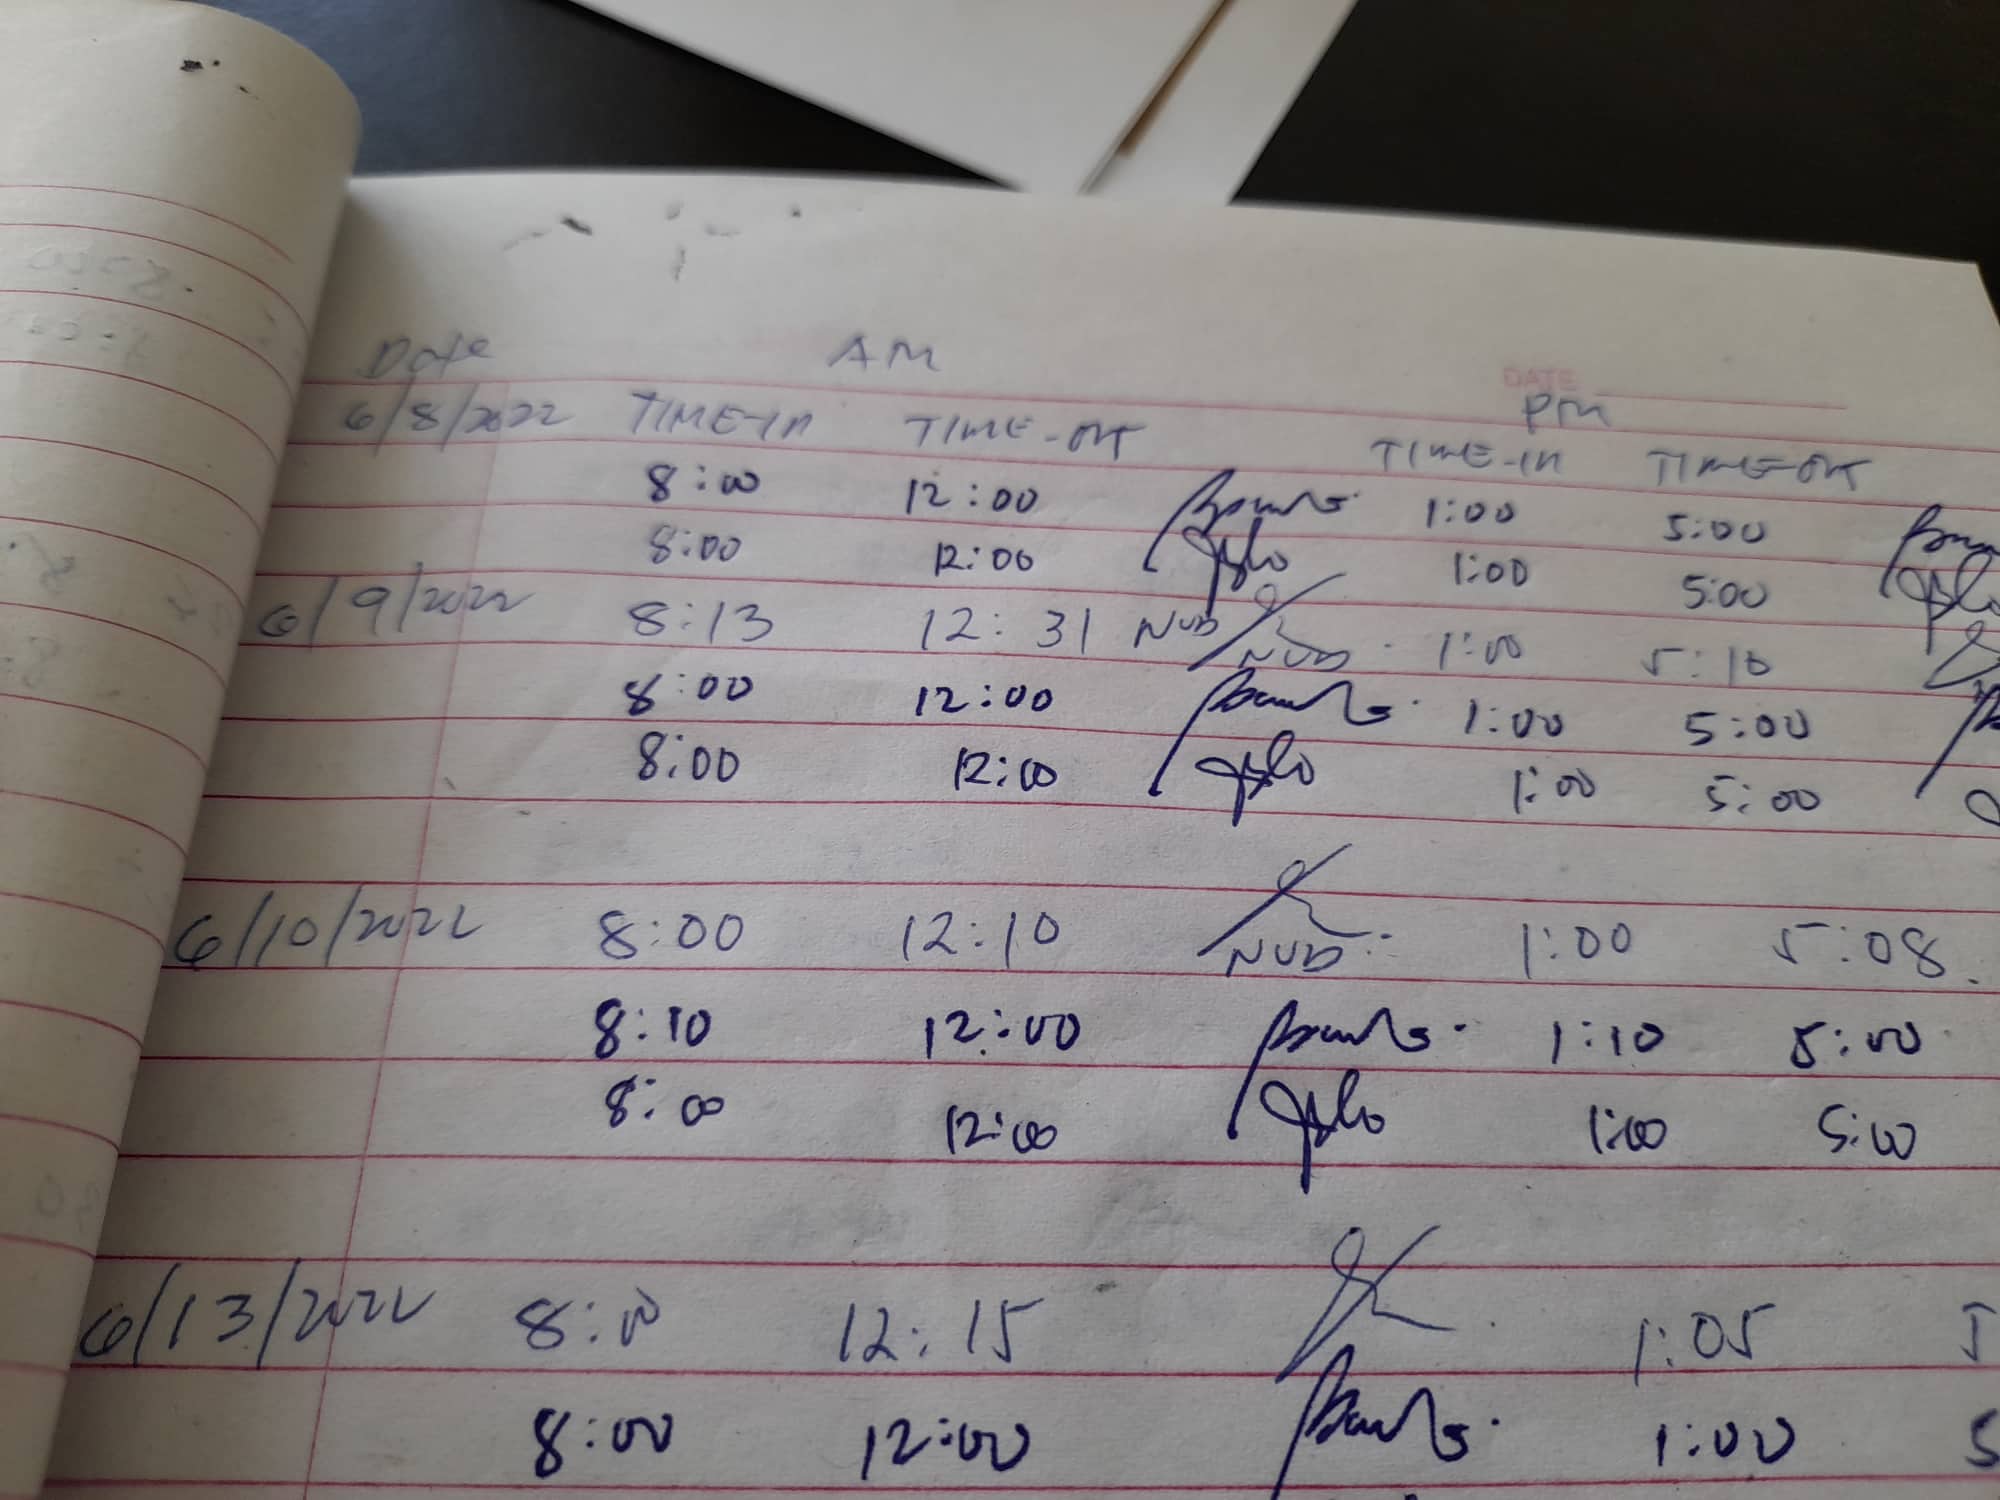 Date AM
DATE
PM
6/8/2022 TIME-IN TIME-OUT TIME-IN TIME-OUT
8:00 12:00 1:00 5:00
8:00 12:00 1:00 5:00
6/9/2022 8:13 12:31 NUD 1:00 5:10
NUD
8:00 12:00 1:00 5:00
8:00 12:00 1:00 5:00
6/10/2022 8:00 12:10 NUD 1:00 5:08
8:10 12:00 1:10 5:00
8:00 12:00 1:00 5:00
6/13/2022 8:00 12:15 1:05
8:00 12:00 1:00